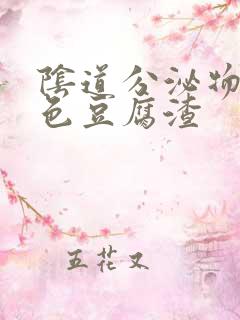 陰道分泌物
色豆腐渣
五花又